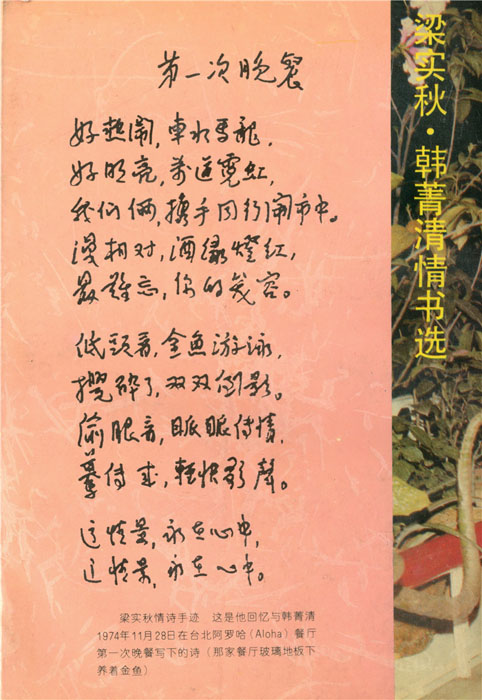 第一次晚餐
好热闹，車水馬龍，
好明亮，萬道霓虹，
我们俩，攜手同行闹市中。
漫相对，酒绿燈红，
最難忘，你的笑容。
低頭看，金魚游泳，
攪碎了，双双倒影。
偷眼看，脈脈传情，
驀传来，輕快歌聲。
这情景，永在心中，
这情景，永在心中。
梁实秋情诗手迹 这是他回忆与韩菁清
1974年11月28日在台北阿罗哈（Aloha）餐厅
第一次晚餐写下的诗（那家餐厅玻璃地板下
养着金鱼）
梁实秋·韩菁清情书选